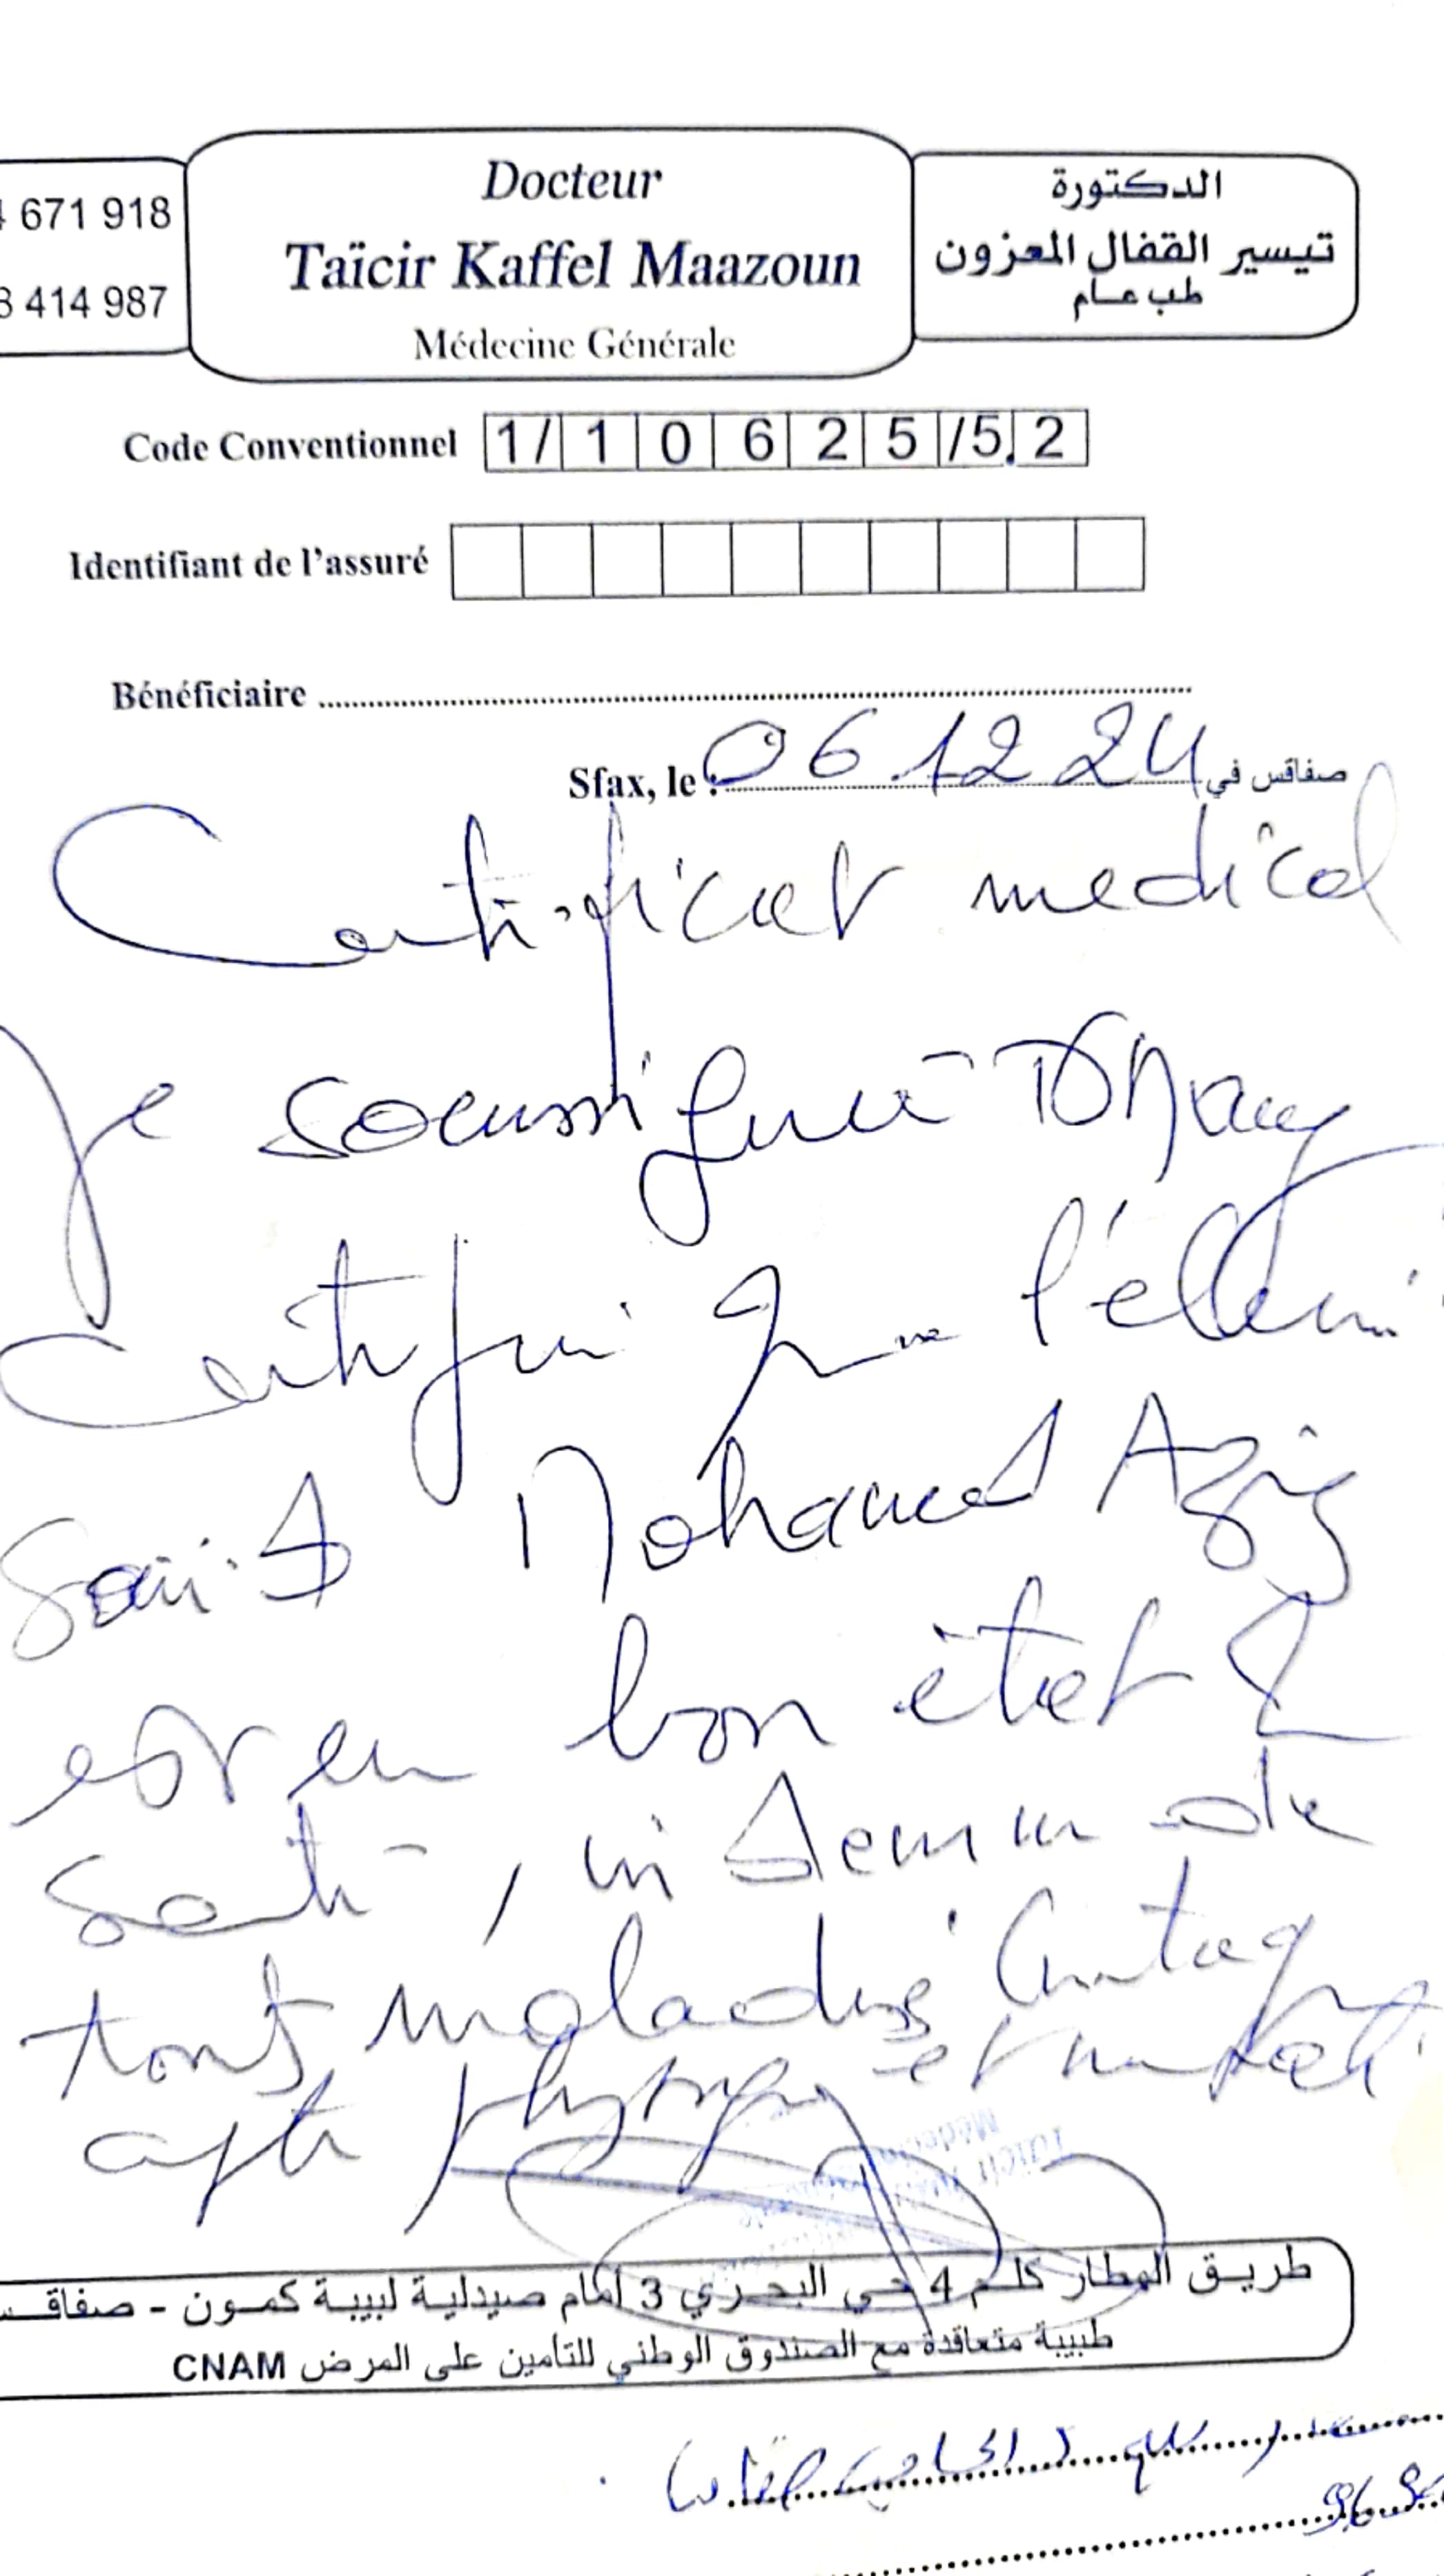 Docteur
Taïcir Kaffel Maazoun
Médecine Générale
671 918
414 987
الدكتورة
تيسير القفال المعزون
طب عام
Code Conventionnel 1/10625/5.2
Identifiant de l'assuré
Bénéficiaire
Sfax, le : 06 12 24 صفاقس في
Certificat medical
Je soussigné
certifie que l'élève
Mohamed Aziz
est en bon état de
santé, indemne de
tous maladies contag
apte physique et mentale
طريق المطار كلم 4 حي البحري 3 أمام صيدلية لبيبة كمون - صفاقس
طبيبة متعاقدة مع الصندوق الوطني للتأمين على المرض CNAM